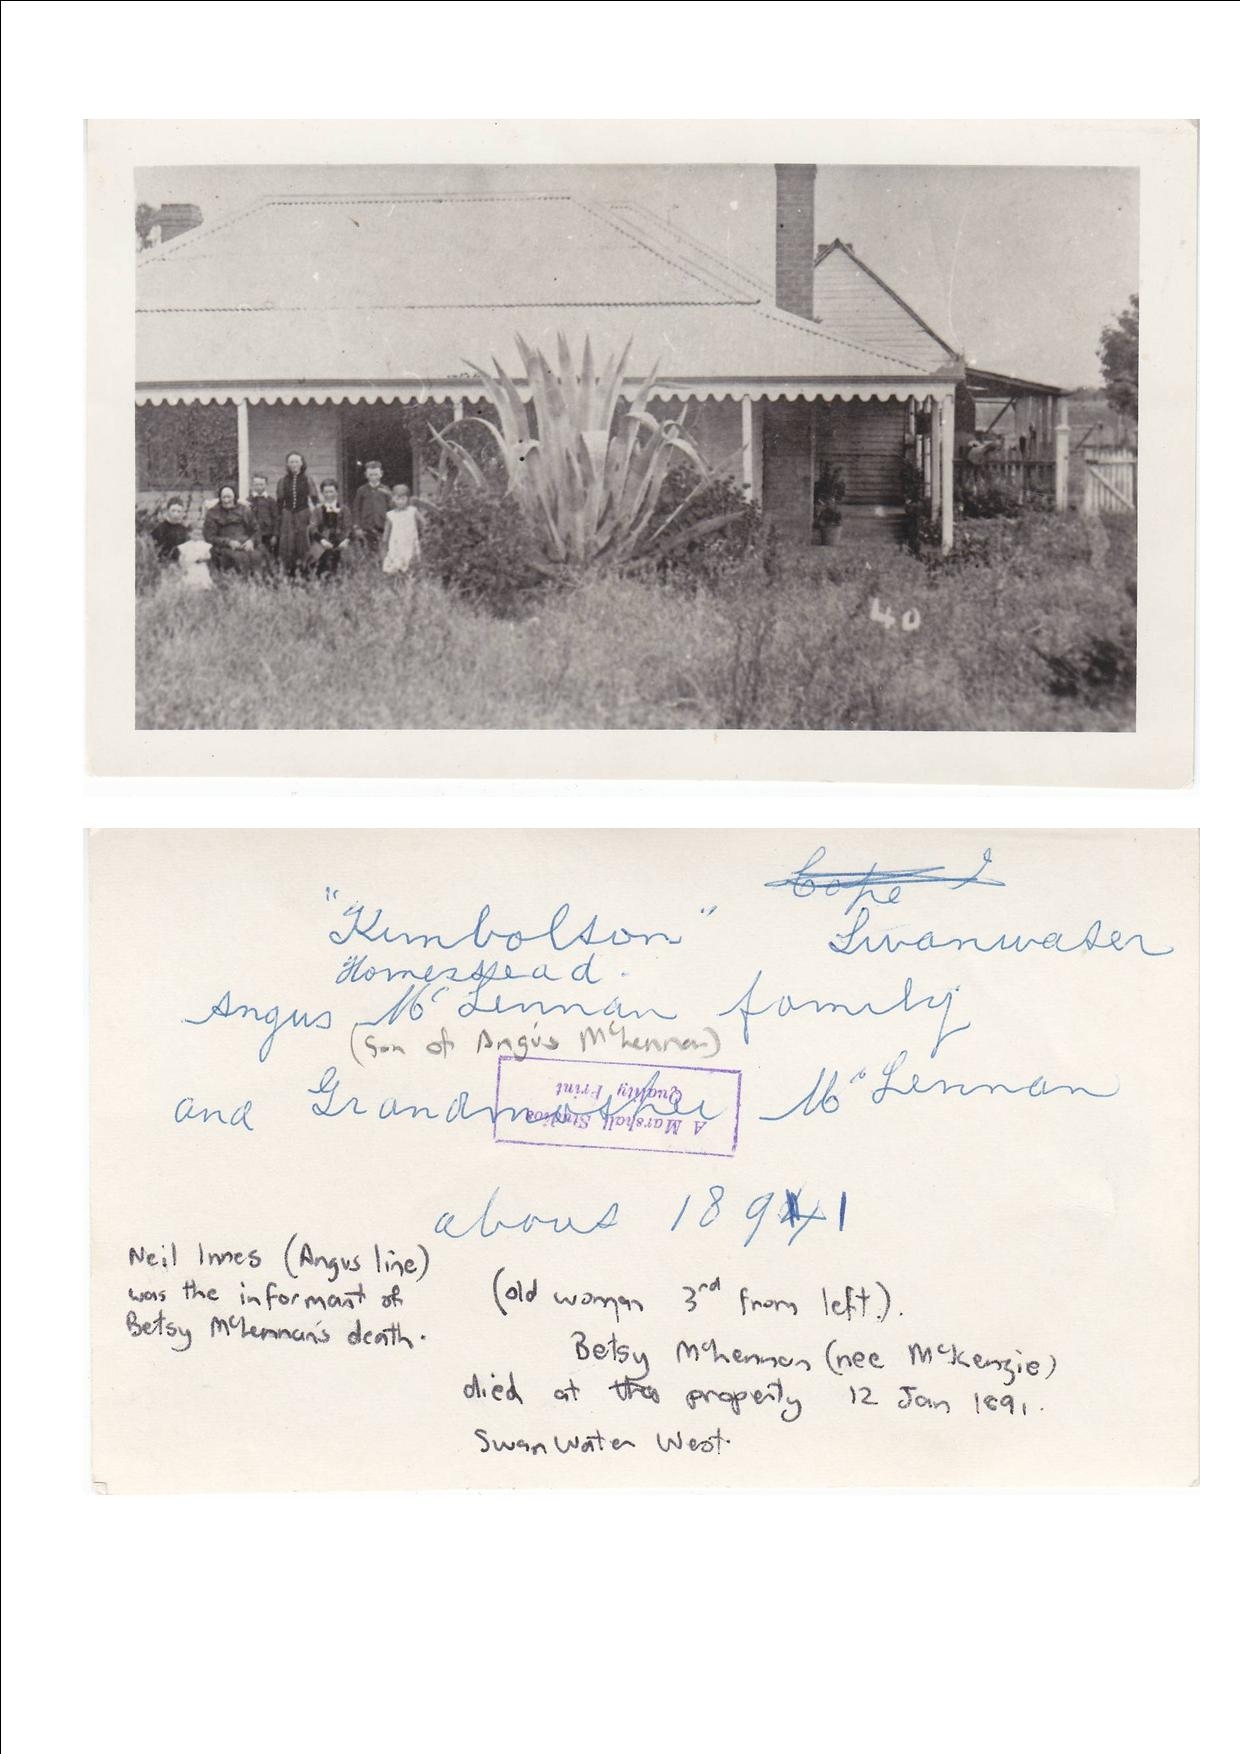 40
Cope
"Kimbolton" Swanwater
Homestead.
Angus McLennan family
(Son of Angus McLennan)
and Grandmother McLennan
A Marshall Studios
Quality Print
about 1891
Neil Innes (Angus line)
was the informant of
Betsy McLennan's death.
(old woman 3rd from left).
Betsy McLennan (nee McKenzie)
died at this property 12 Jan 1891.
Swan Water West.